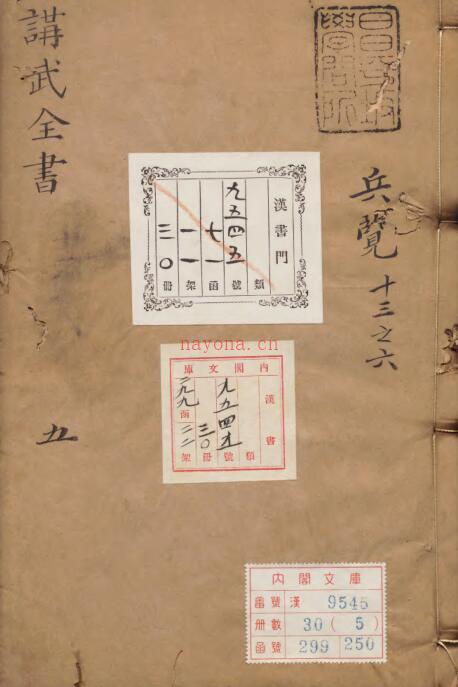 講武全書
兵覽 十三之六
五
昌平坂
學問所
漢書門
九五四五
七一
一一
三〇
類 號 函 架 冊
nayona.cn
內閣文庫
漢書
九五四五
三〇
二九九
二二
類 號 冊 函 架
內閣文庫
番號 漢 9545
冊數 30 ( 5 )
函號 299 250